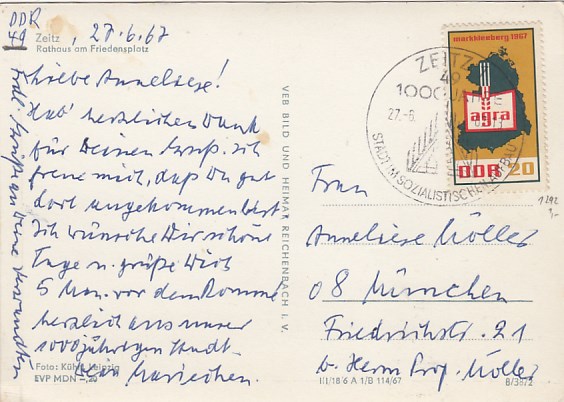 DDR
49
Zeitz, 27.6.67
Rathaus am Friedensplatz
Liebe Anneliese!
Hab' herzlichen Dank
für Deinen Gruß. Ich
freue mich, daß Du gut
dort angekommen bist.
Ich wünsche Dir schöne
Tage u. grüße Dich
5 Min. vor dem
herzlich aus unserer
1000jährigen Stadt.
Dein Mariechen.
Frdl. Grüße an Deine Verwandten
Foto: Kühn, Leipzig
EVP MDN -,20
VEB BILD UND HEIMAT REICHENBACH I. V.
markkleeberg 1967
agra
DDR 20
ZEITZ
49
1000 JAHRE
27.-6.
STADT IM SOZIALISTISCHEN AUFBAU
1292
Frau
Anneliese Möller
08 München
Friedrichstr. 21
b. Herrn Prof. Möller
III/18/6 A 1/B 114/67
B/3872